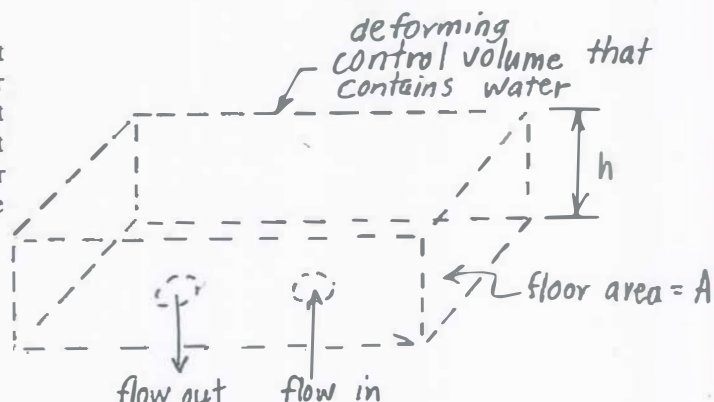 deforming
control volume that
contains water
h
floor area = A
flow out
flow in